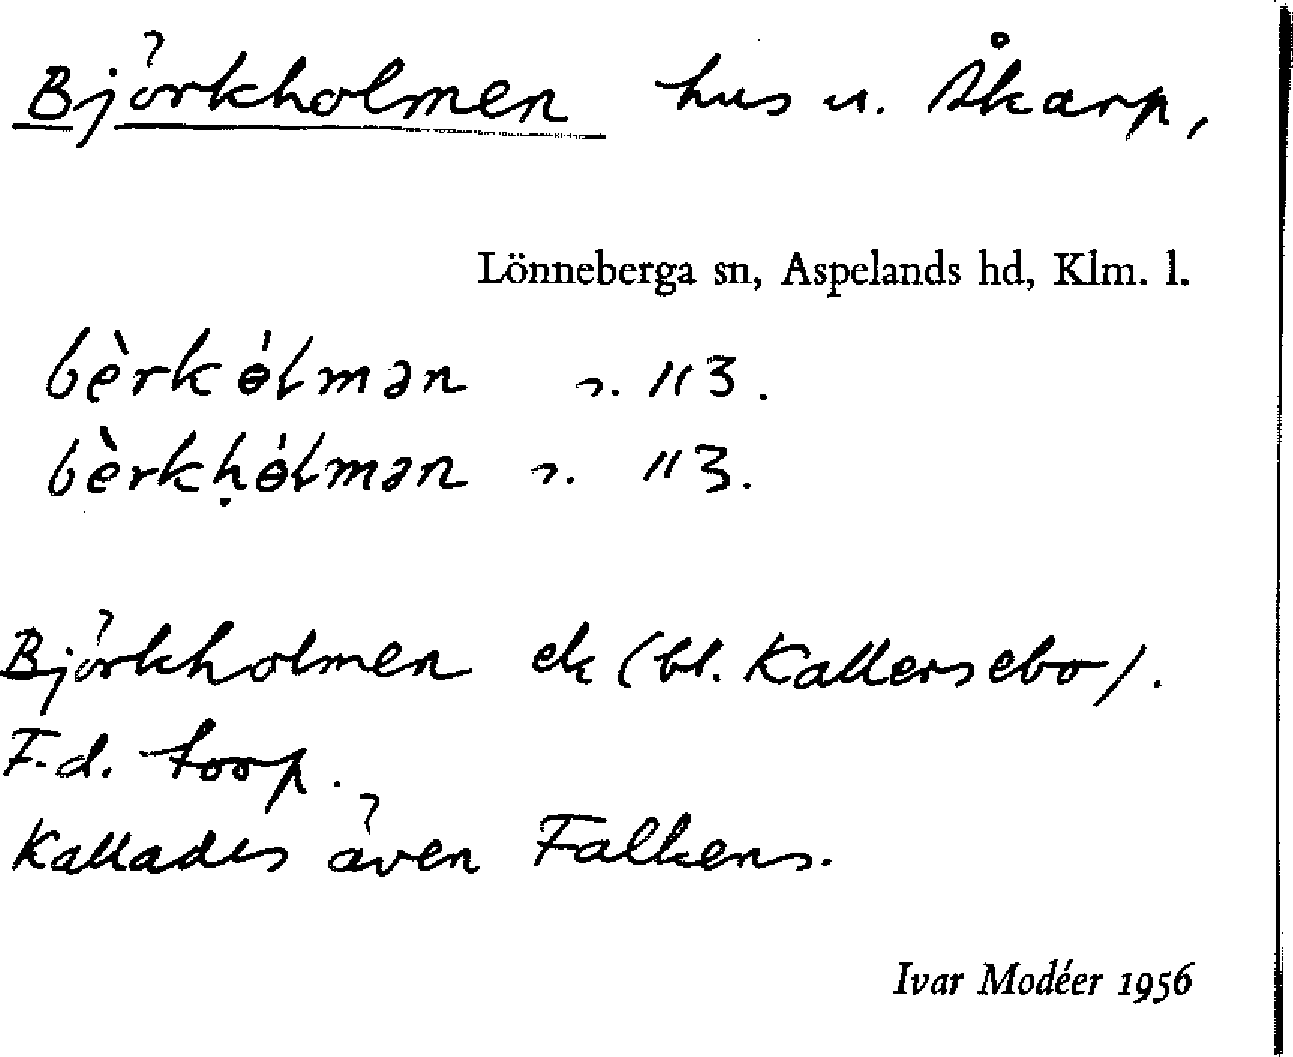 Björkholmen hus u. Åkarp,
Lönneberga sn, Aspelands hd, Klm. l.
bèrkɵ́lmən 113.
bèrkḥɵ́lmən 113.
Björkholmen ek (bl. Kallersebo).
F.d. torp.
Kallades även Falkens.
Ivar Modéer 1956